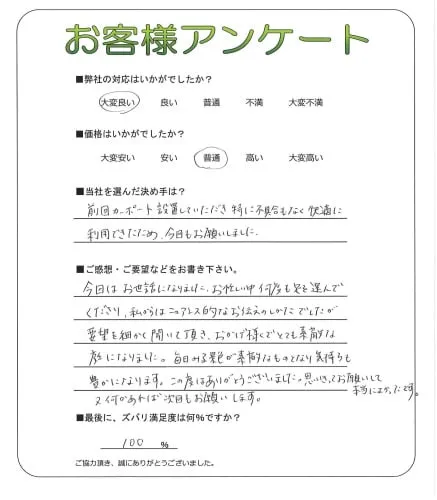 お客様アンケート
■弊社の対応はいかがでしたか？
大変良い 良い 普通 不満 大変不満
■価格はいかがでしたか？
大変安い 安い 普通 高い 大変高い
■当社を選んだ決め手は？
前回カーポート設置していただき特に不具合もなく快適に
利用できたため、今回もお願いしました。
■ご感想・ご要望などをお書き下さい。
今回はお世話になりました。お忙しい中何度も足を運んで
くださり、私からはニュアンス的なお伝えのしかたでしたが
要望を細かく聞いて頂き、おかげ様でとても素敵な
庭になりました。毎日みる景色が素敵なものとなり気持ちも
豊かになります。この度はありがとうございました。思いきってお願いして
本当によかったです。
又何かあれば次回もお願いします。
■最後に、ズバリ満足度は何%ですか？
100 %
ご協力頂き、誠にありがとうございました。